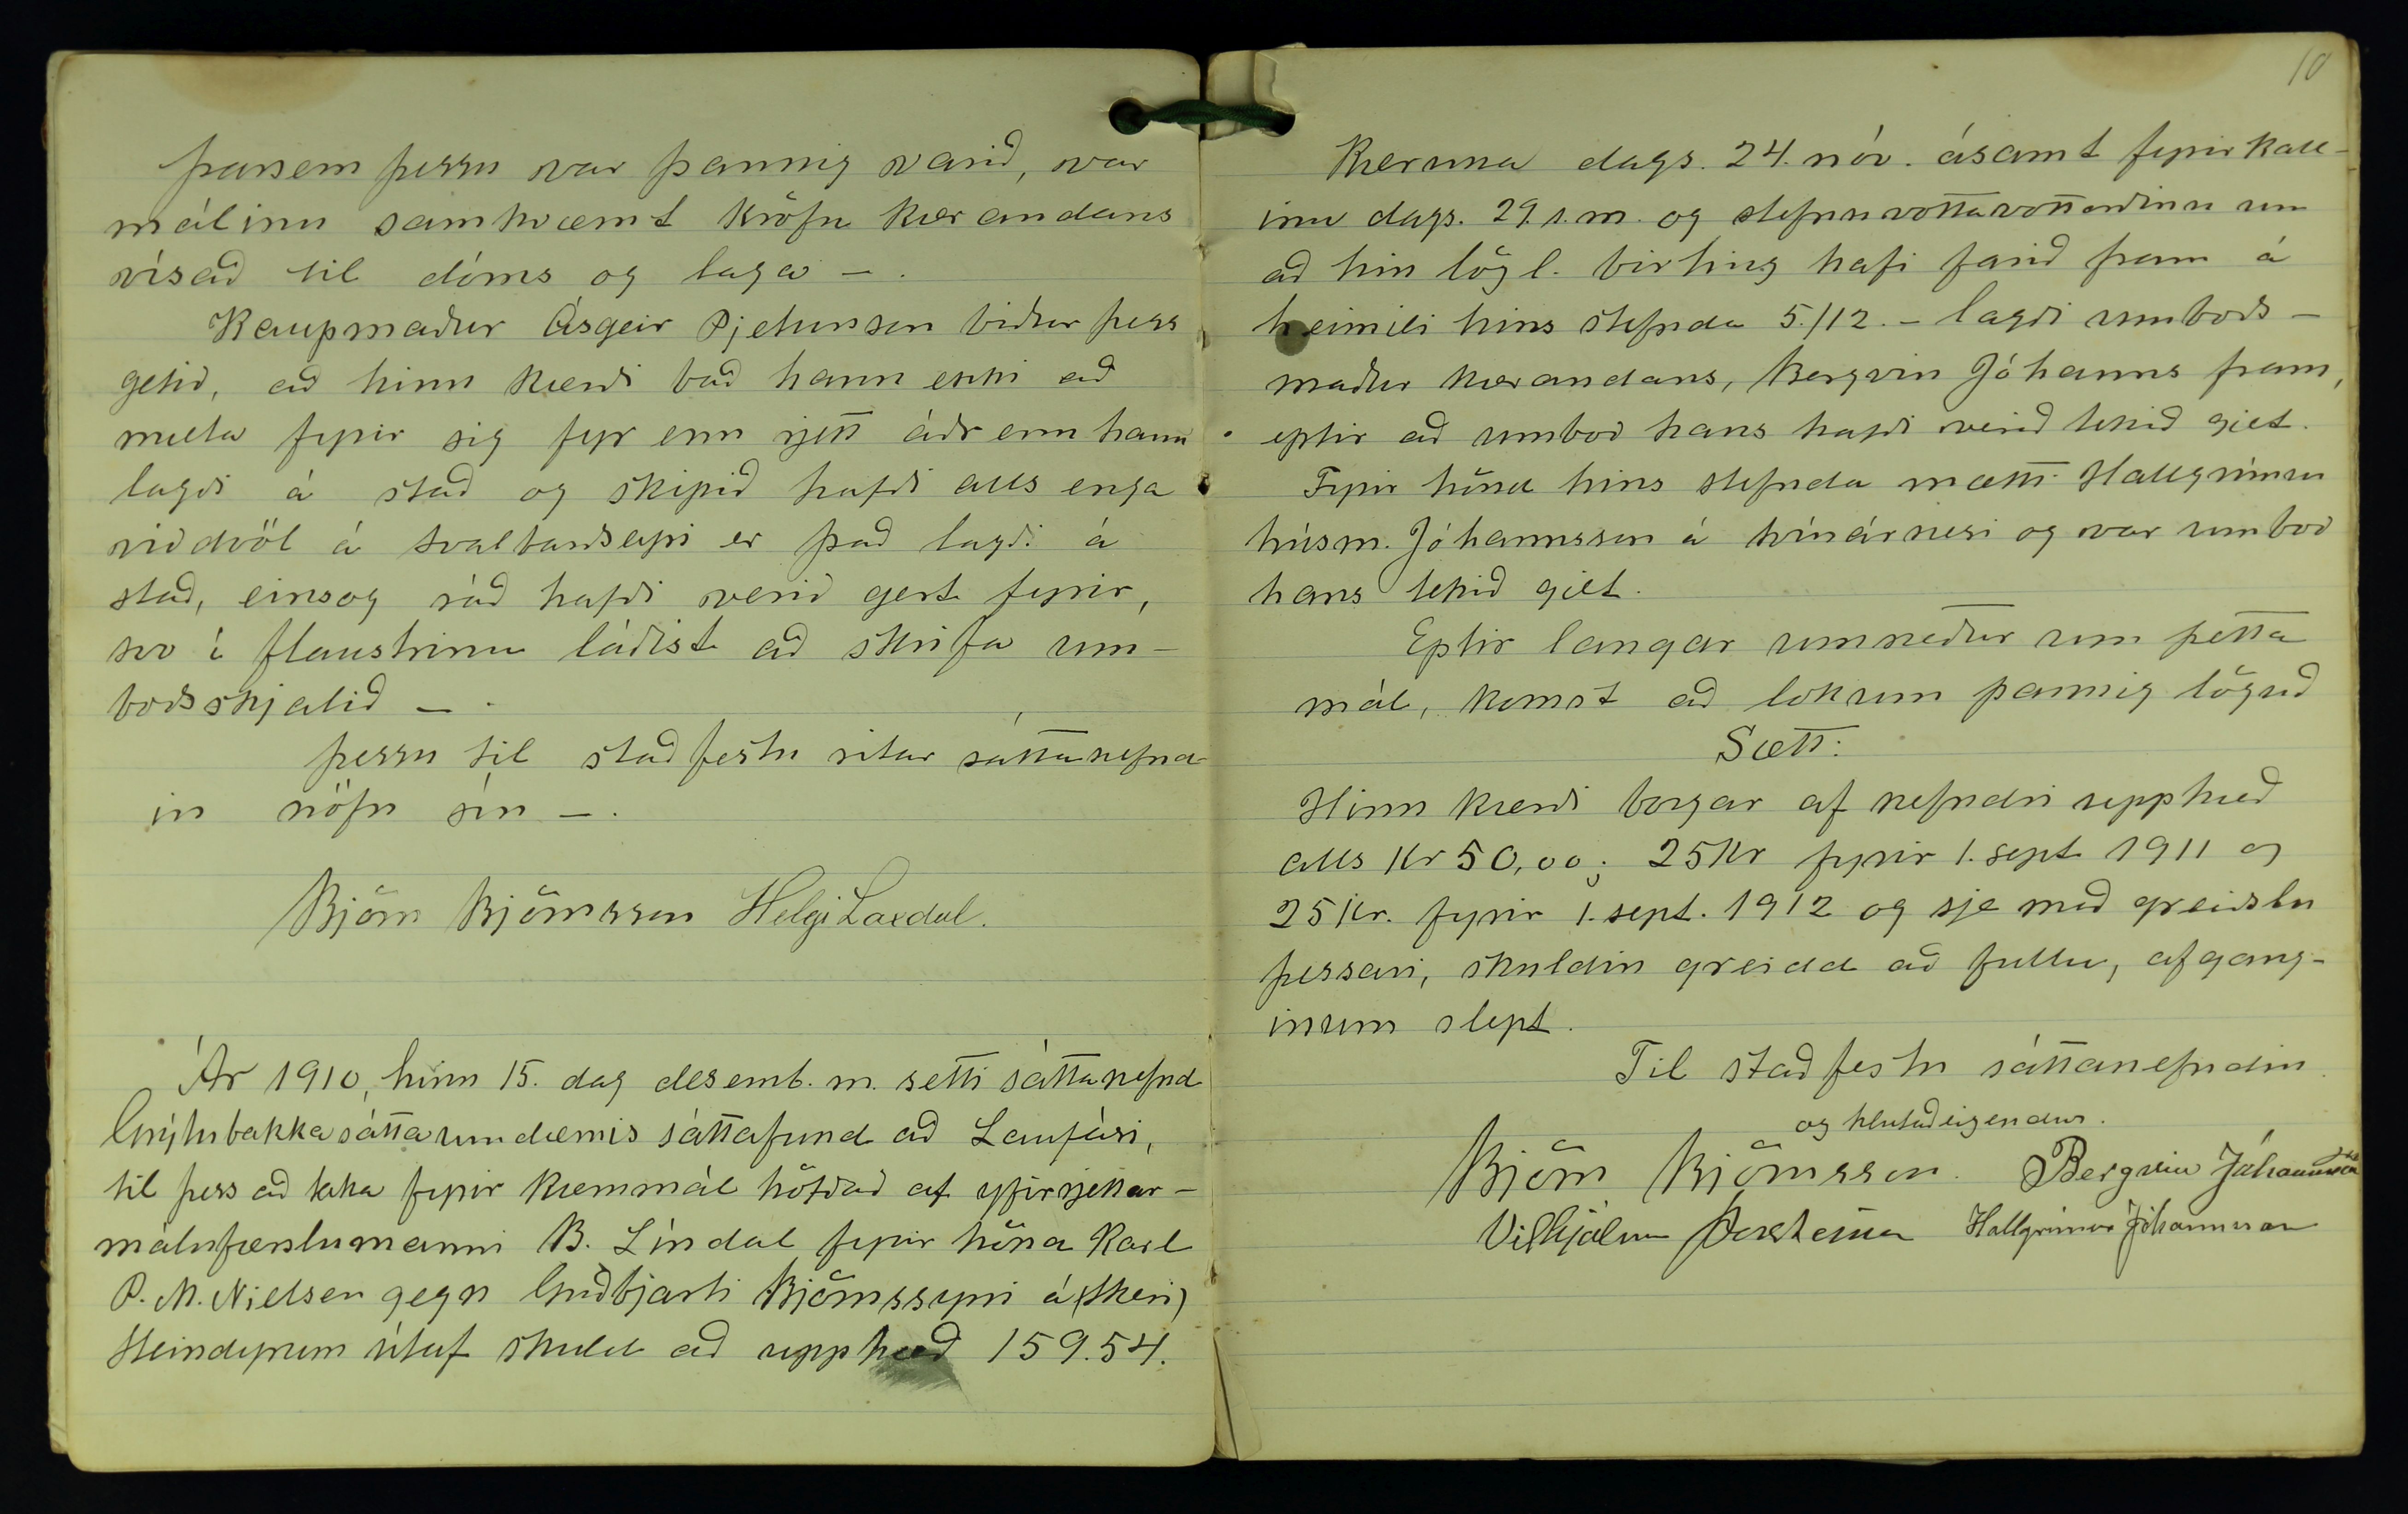 þarsem þessu var þannig varið, var
málinu samkvæmt kröfu kærandans
vísað til dóms og laga –.
Kaupmaður Ásgeir Pjetursson biður þess
getið, að hinn kærði bað hann ekki að
mæta fyrir sig fyr enn rjett áðr enn hann
lagði á stað og skipið hafði alls enga
viðdvöl á Svalbarðseyri er það lagði á
stað, einsog ráð hafði verið gert fyrir,
svo í flaustrinu láðist að skrifa um-
boðsskjalið –.
Þessu til staðfestu ritar sáttanefnd-
in nöfn sín –.
Björn Björnsson Helgi Laxdal.
Ár 1910, hinn 15. dag desemb. m. setti sáttanefnd
Grýtubakkasáttaumdæmis sáttafund að Laufási,
til þess að taka fyrir kærumál höfðað af yfirrjettar-
málafærslumanni B. Líndal fyrir hönd Karl
P. M. Nielsen gegn Guðbjarti Björnssyni á (Skeri)
Steindyrum útaf skuld að upphæð 159.54.
10
Kæruna dags. 24. nóv. ásamt fyrirkall-
inu dags. 29. s.m. og stefnuvottavottorðinu um
að hin lögl. birting hafi farið fram á
heimili hins stefnda 5./12. – lagði umboðs-
maður kærandans, Bergvin Jóhanns fram,
eptir að umboð hans hafði verið tekið gilt.
Fyrir hönd hins stefnda mætti Hallgrímur
húsm. Jóhannsson á
og var umboð
hans tekið gilt.
Eptir langar umræður um þetta
mál, komst að lokum þannig löguð
Sætt:
Hinn kærði borgar af nefndri upphæð
alls Kr 50,00; 25 Kr fyrir 1. sept. 1911 og
25 Kr. fyrir 1. sept. 1912 og sje með greiðslu
þessari, skuldin greidd að fullu, afgang-
inum slept.
Til staðfestu sáttanefndin
og hlutaðeigendur.
Björn Björnsson. Bergvin Jóhannsson
Vilhjálmur Þorsteinsson Hallgrímur Jóhannsson